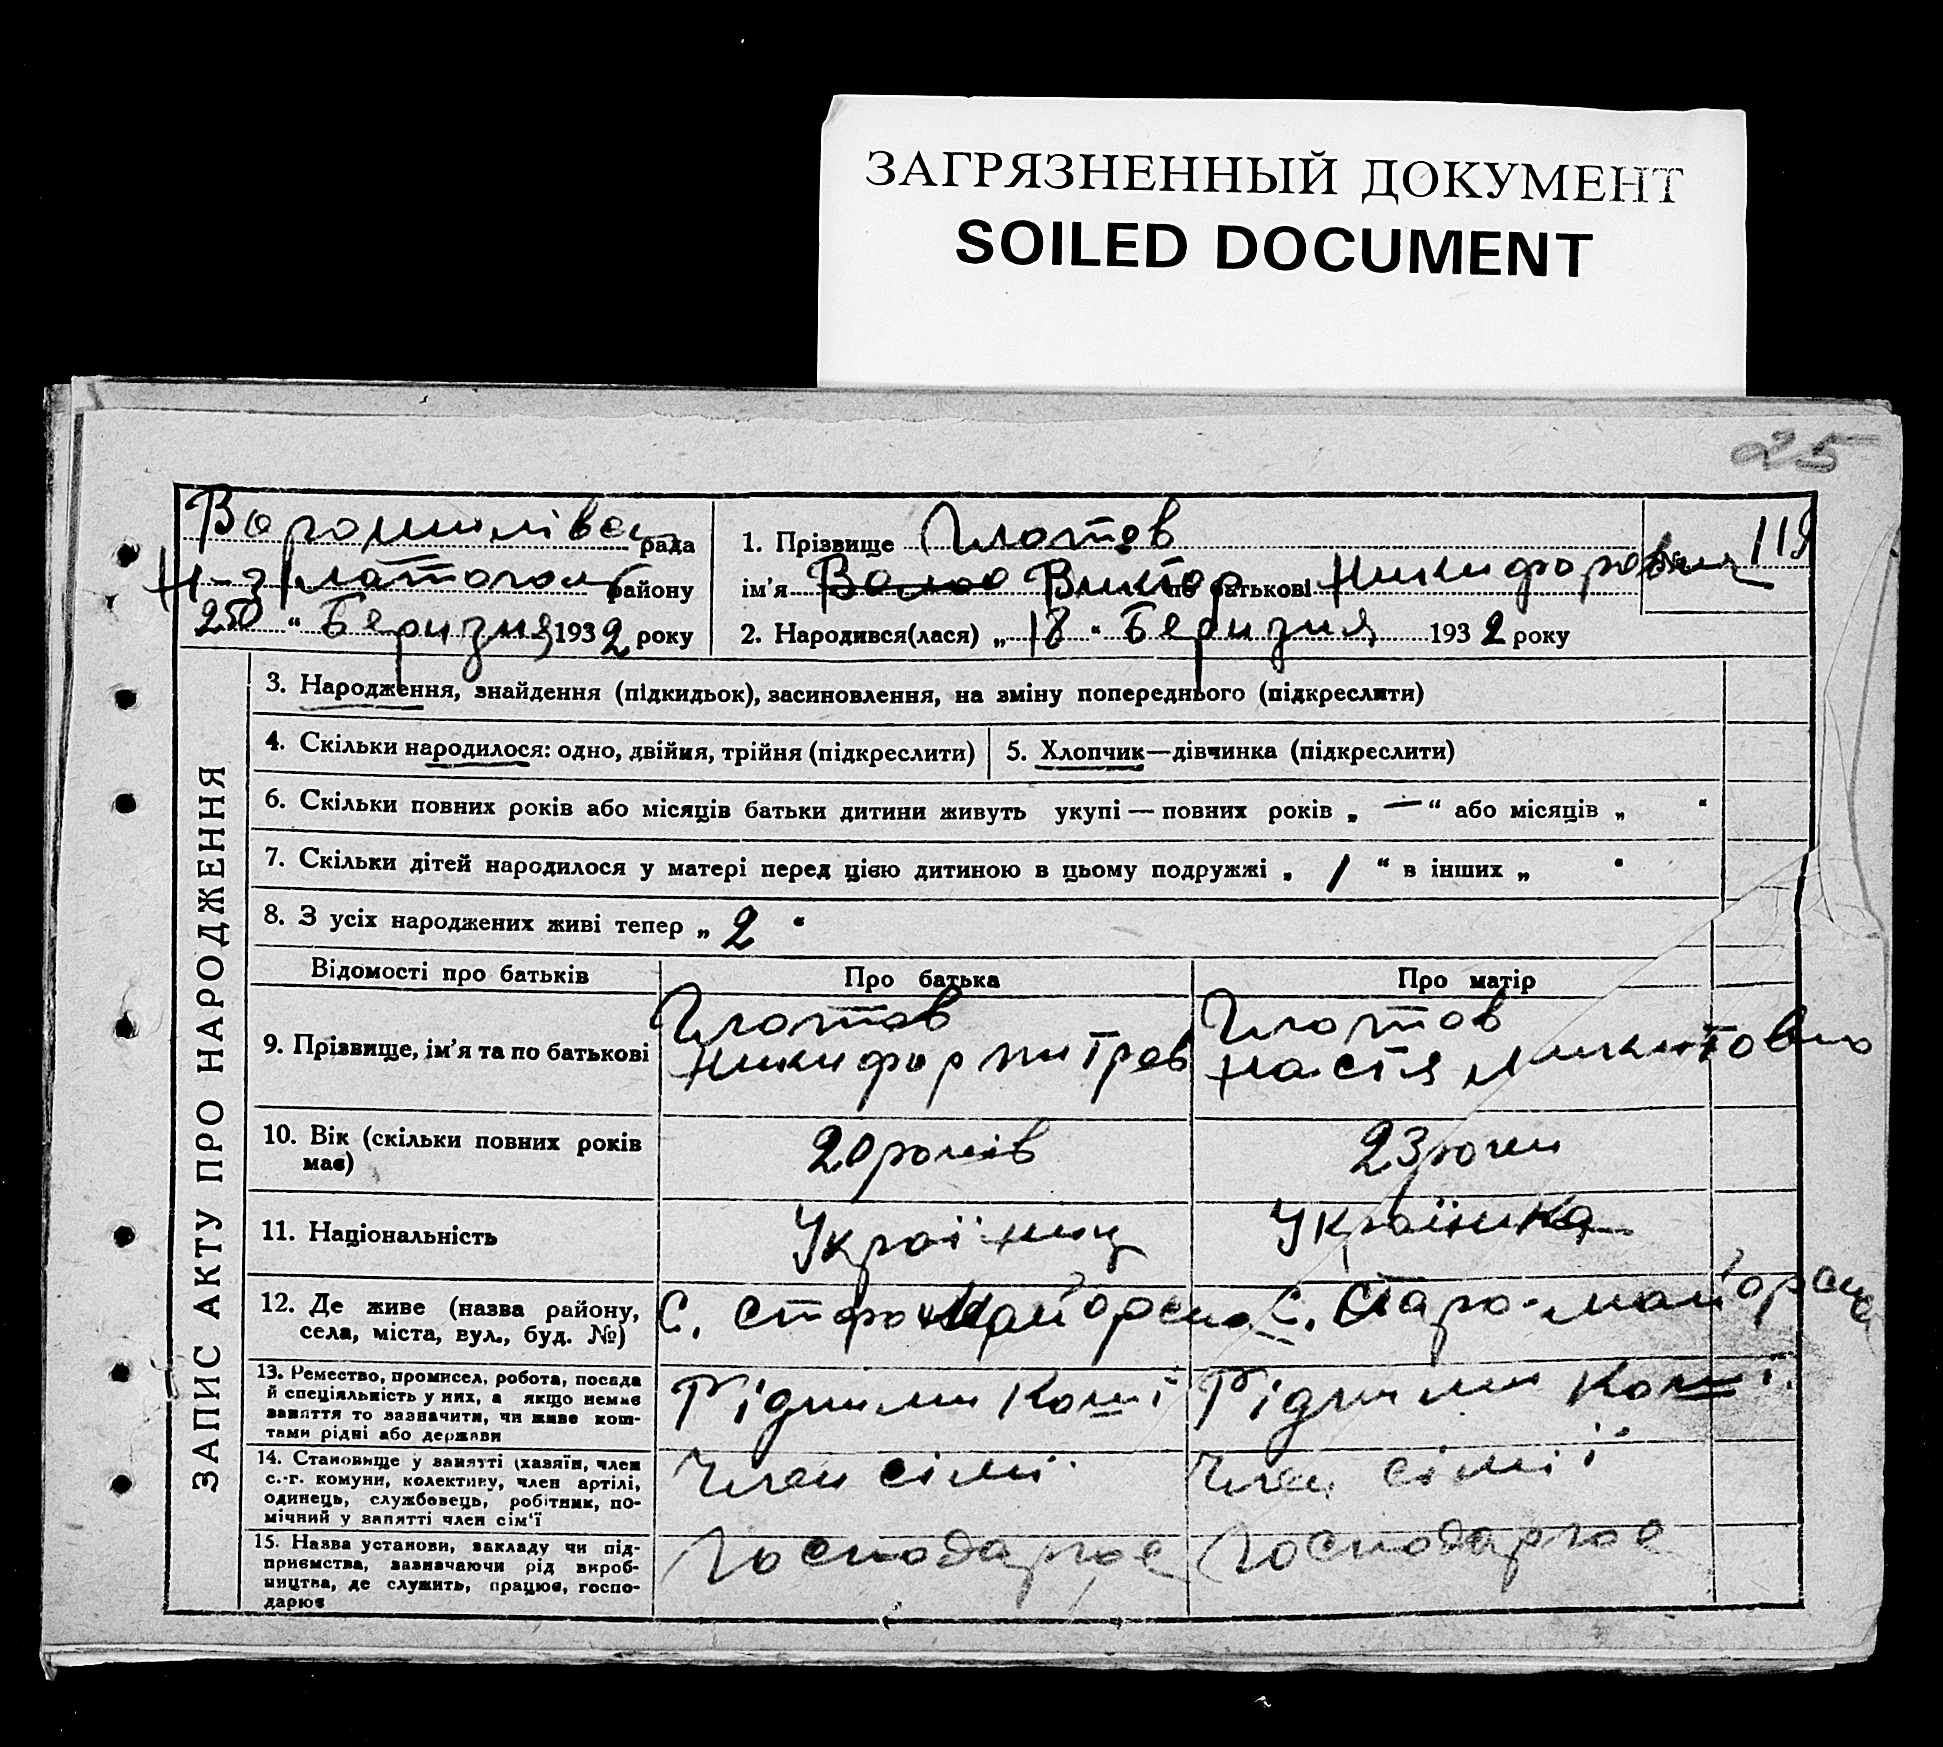 ЗАГРЯЗНЕННЫЙ ДОКУМЕНТ
SOILED DOCUMENT
25
рада
району
“ Беризня 1932 року
1. Прізвище Глотов
119
ім’я Виктор по батькові Никифорович
2. Народився(лася) „ 18 “ Беризня 1932 року
ЗАПИС АКТУ ПРО НАРОДЖЕННЯ
3. Народження, знайдення (підкидьок), засиновлення, на зміну попереднього (підкреслити)
4. Скільки народилося: одно, двійня, трійня (підкреслити)
5. Хлопчик—дівчинка (підкреслити)
6. Скільки повних років або місяців батьки дитини живуть укупі — повних років „ — “ або місяців „ “
7. Скільки дітей народилося у матері перед цією дитиною в цьому подружжі „ 1 “ в інших „ “
8. З усіх народжених живі тепер „ 2 “
Відомості про батьків
Про батька
Про матір
9. Прізвище, ім’я та по батькові
Глотов
Никифор Митров
Глотов
Настя Микитовно
10. Вік (скільки повних років
має)
20 років
23 роки
11. Національність
Україниц
Українка
12. Де живе (назва району,
села, міста, вул., буд. №)
С.
С. Старо-Майорське
13. Ремество, промисел, робота, посада
й спеціяльність у них, а якщо немає
заняття то зазначити, чи живе кош-
тами рідні або держави
Рідними кош
Рідними кош
14. Становище у занятті (хазяїн, член
с.-г. комуни, колективу, член артілі,
одинець, службовець, робітник, по-
мічний у занятті член сім’ї
Член сімії
Член сімії
15. Назва установи, закладу чи під-
приємства, зазначаючи рід вироб-
ництва, де служить, працює, госпо-
дарює
Господарює
Господарює